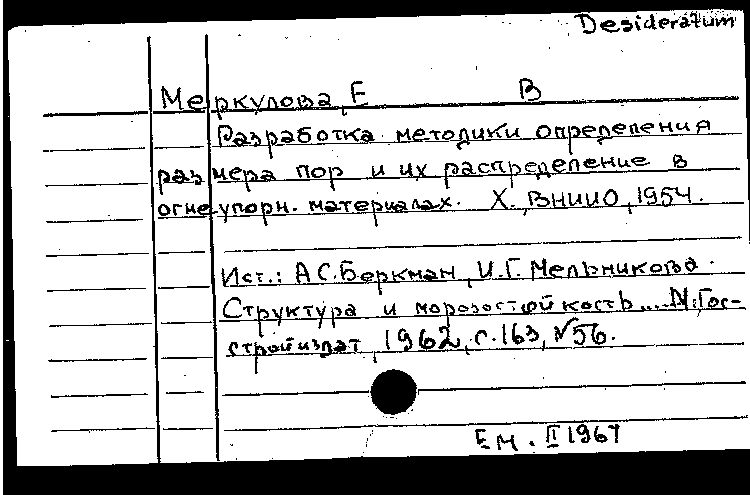 Desideratum
Меркулова, Е В
Разработка методики определения
размера пор и их распределение в
огнеупорн. материалах. Х., ВНИИО, 1954.
Ист.: А.С. Беркман, И.Г. Мельникова.
Структура и морозостойкость... М., Гос-
стройиздат, 1962, с. 163, №56.
Ем. II 1967